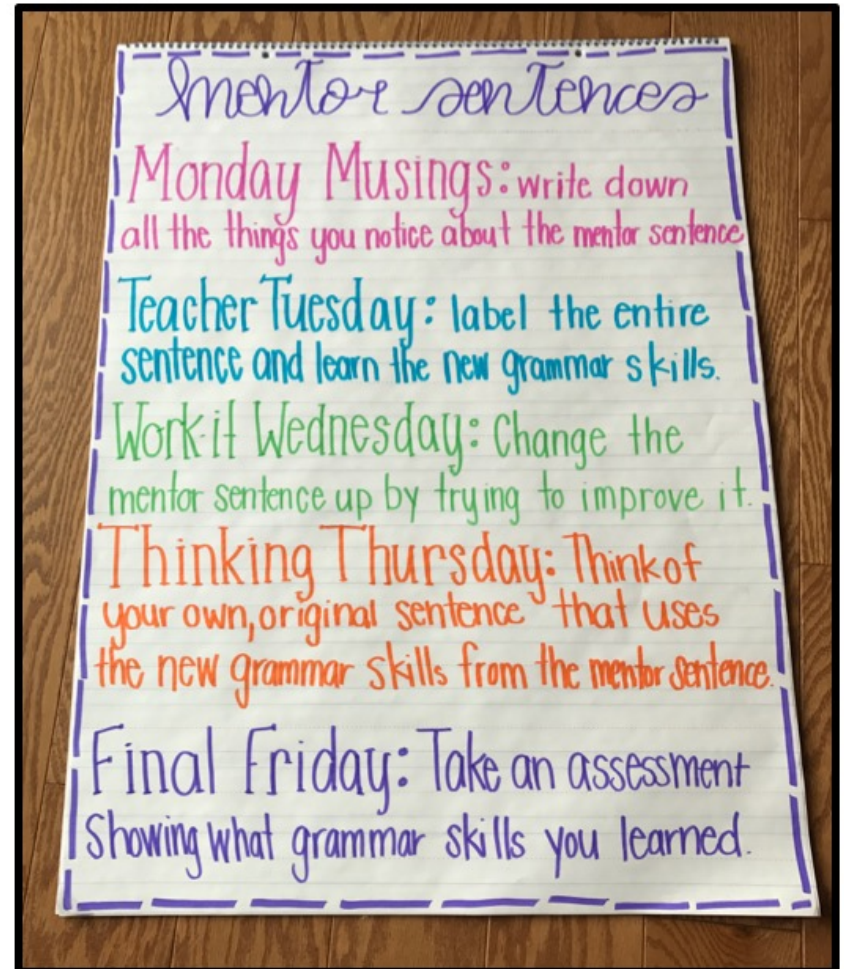 mentor sentences
Monday Musings: write down
all the things you notice about the mentor sentence
Teacher Tuesday: label the entire
sentence and learn the new grammar skills.
Work it Wednesday: Change the
mentor sentence up by trying to improve it.
Thinking Thursday: Think of
your own, original sentence that uses
the new grammar skills from the mentor sentence.
Final Friday: Take an assessment
Showing what grammar skills you learned.